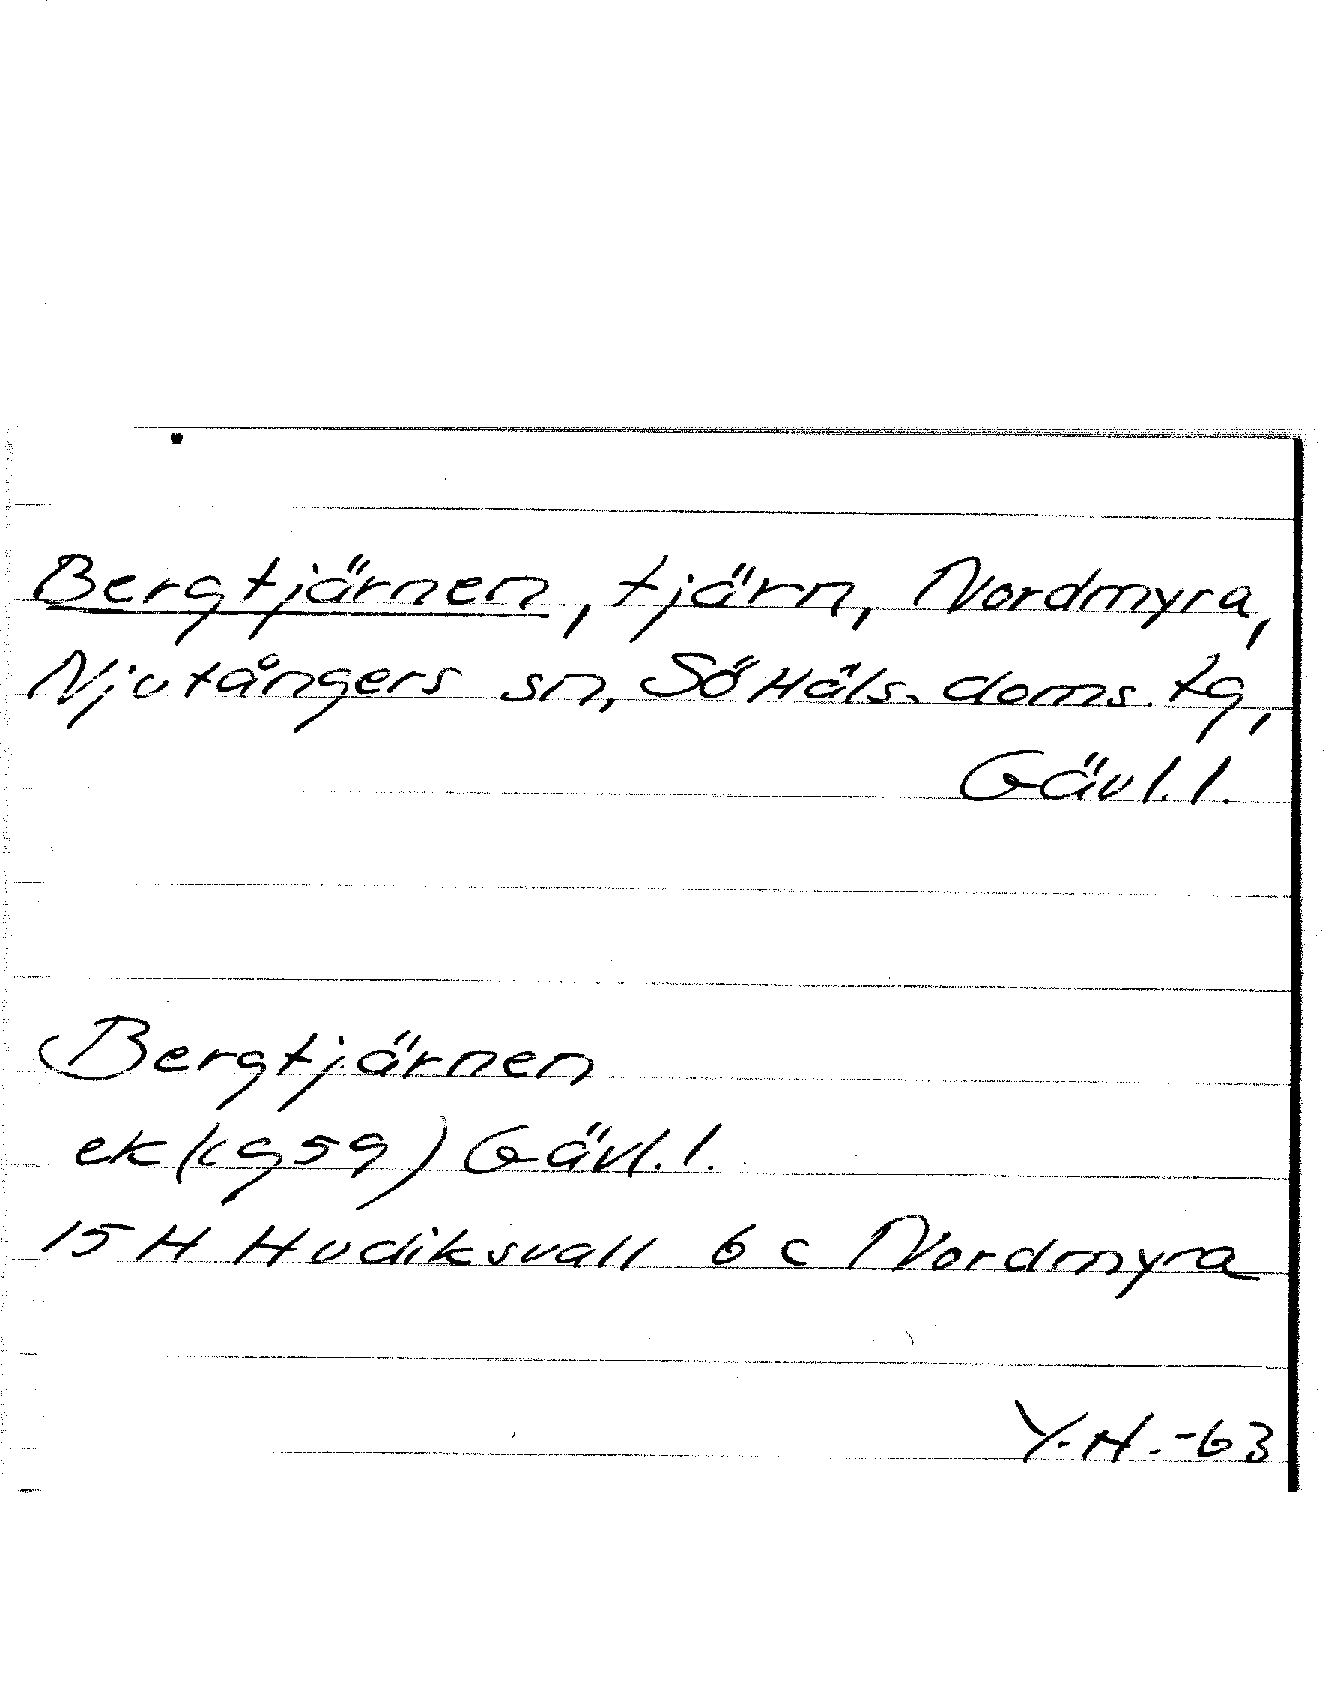 Bergtjärnen, tjärn, Nordmyra,
Njutångers sn, Sö Häls. doms. tg,
Gävl. l.
Bergtjärnen
ek (kg 59) Gävl. l.
15 H Hudiksvall 6 c Nordmyra
Y. H. -63